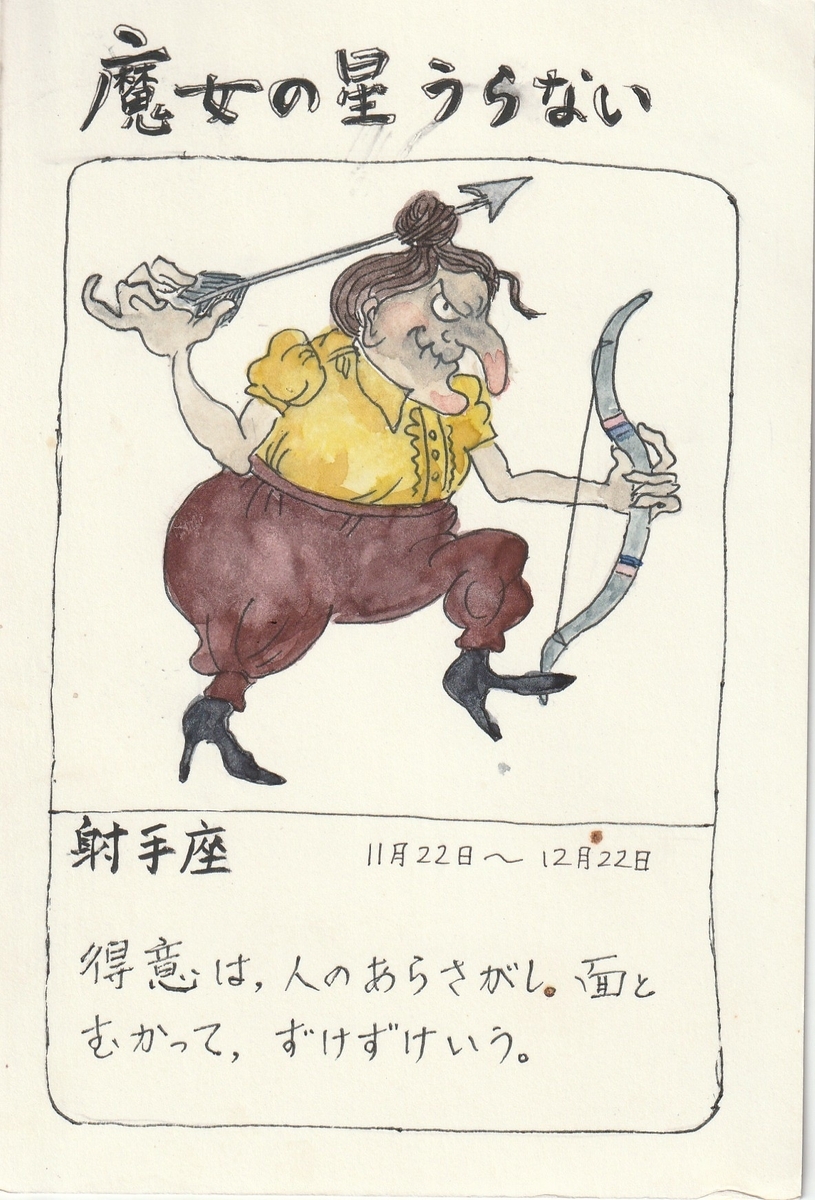 魔女の星うらない
射手座 11月22日～12月22日
得意は,人のあらさがし。面と
むかって,ずけずけいう。